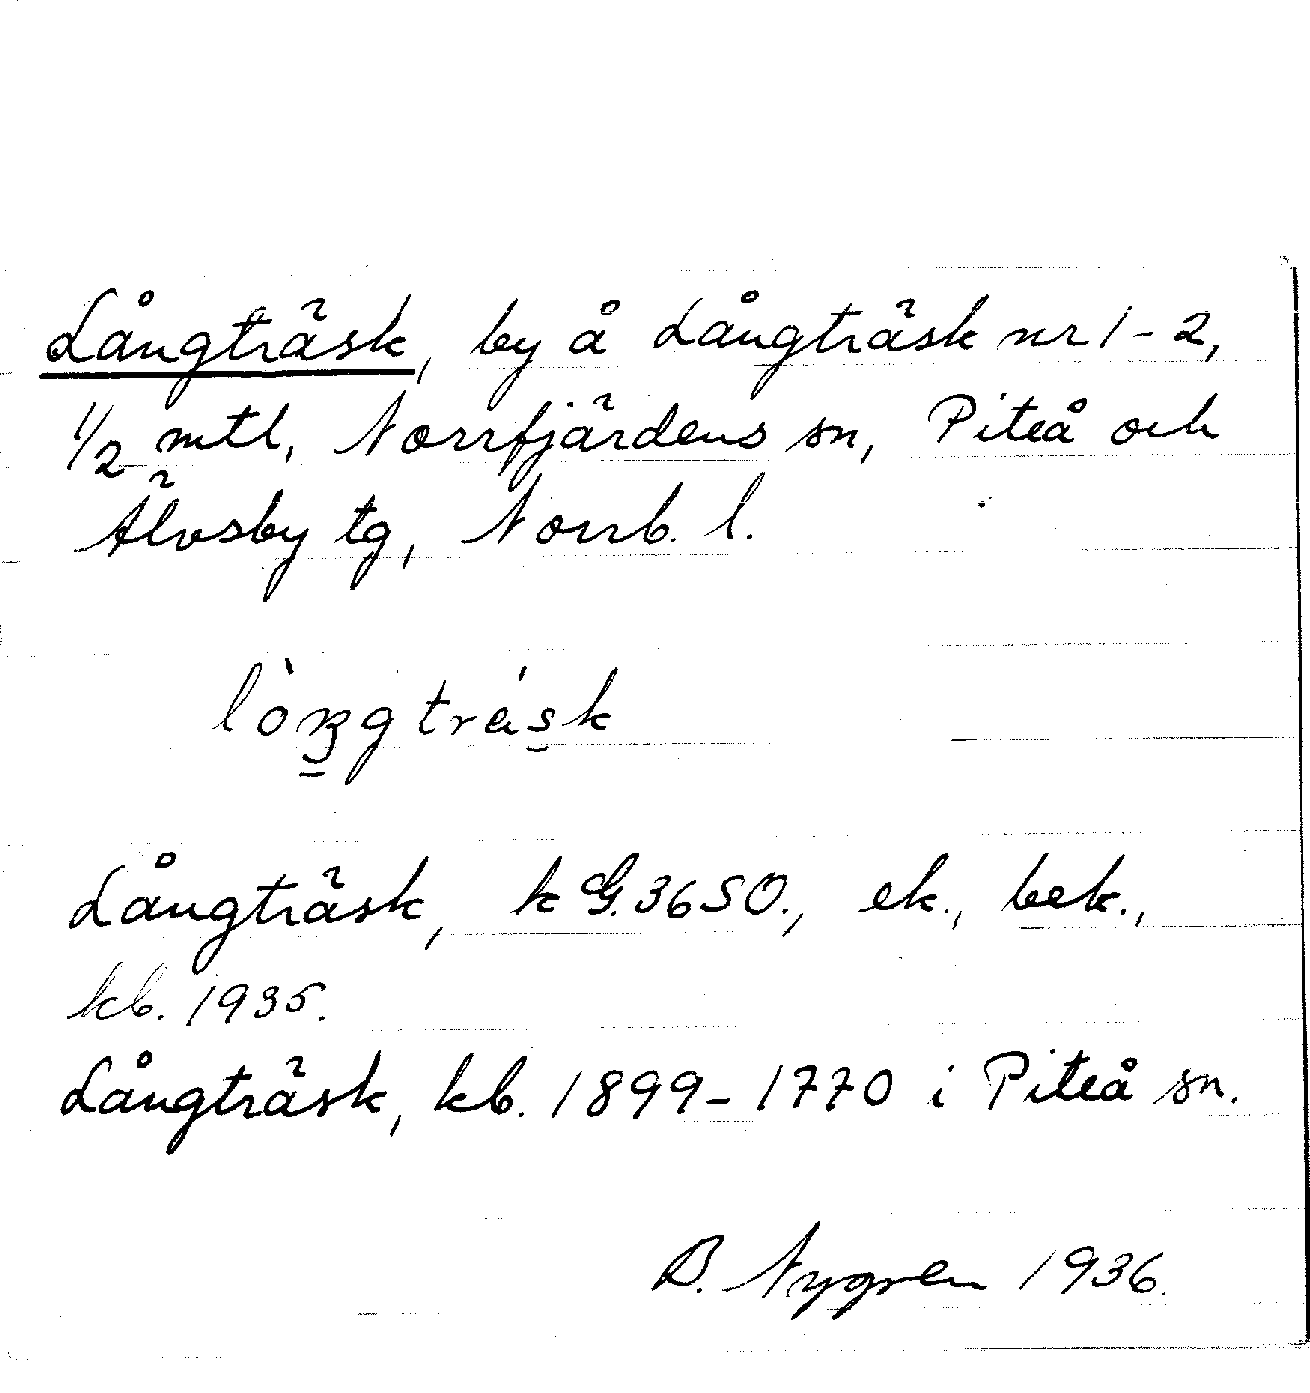 Långträsk, by å Långträsk nr 1-2,
1/2 mtl, Norrfjärdens sn, Piteå och
Älvsby tg, Norrb. l.
Långträsk, k G. 36 SO., ek., bek.,
kb. 1935.
Långträsk, kb. 1899-1770 i Piteå sn.
B. Nygren 1936.